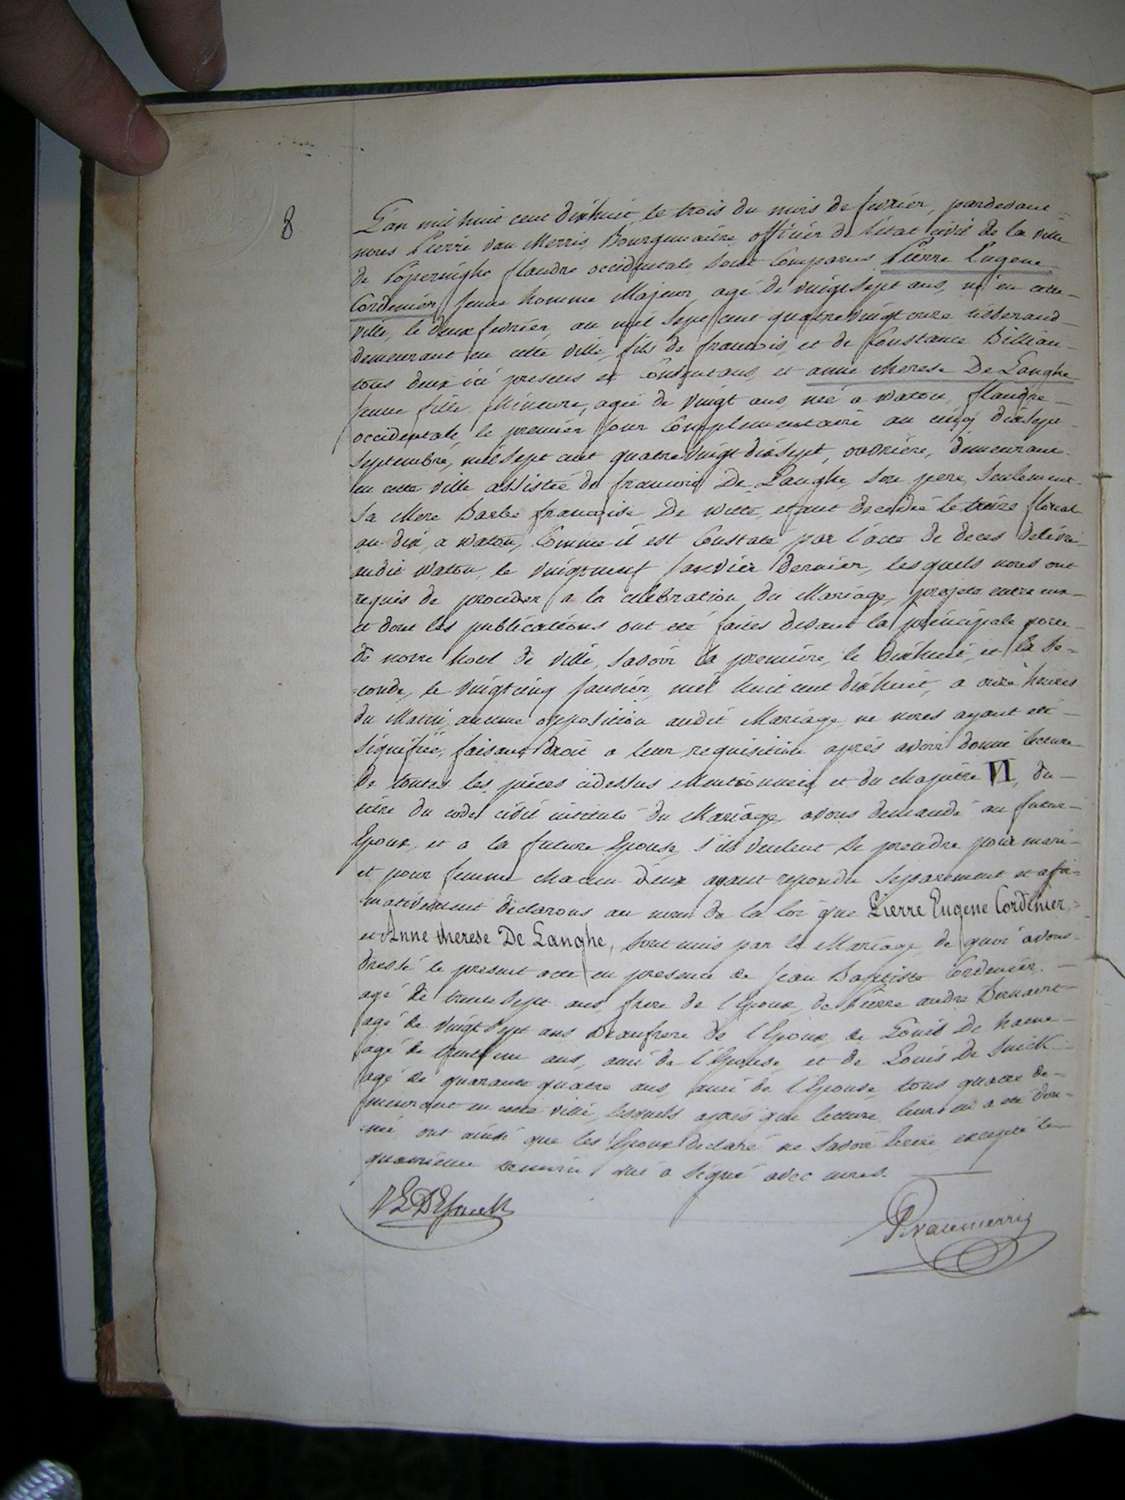 8
L'an mil huit cent dixhuit, le trois du mois de fevrier, pardevant
nous Pierre Van Merris, Bourguemaitre, officier de l'état civil de la ville
de Poperinghe flandre occidentale, sont comparus Pierre Eugene
Cordenier, jeune homme Majeur, agé de vingt sept ans, né en cette
ville, le deux fevrier, an mil sept cent quatre vingt onze tisserand
demeurant en cette ville, fils de francois, et de Constance Billiau
tous deux ici presens et consentans, et anne therese De Langhe
jeune fille Mineure, agée de vingt ans, née a watou, flandre
occidentale, le premier jour Complementaire an cinq dixsept
septembre, mil sept cent quatre vingt dixsept, ouvrière, demeurant
en cette ville assistée de francois De Langhe, son pere, seulement
sa Mere Barbe francoise De Witte, etant decedée le treize floreal
an dix, a watou, Comme il est Constaté par l'acte de deces delivré
audit watou, le vingtneuf janvier dernier, les quels nous ont
requis de proceder a la celebration du Mariage, projeté entre eux
et dont les publications ont eté faites devant la principale porte
de notre hotel de ville, savoir la premiere, le dixhuit, et la se-
conde, le vingtcinq janvier, mil huit cent dixhuit, a onze heures
du Matin, aucune opposition audit Mariage ne nous ayant eté
signifiée, faisant droit a leur requisition après avoir donné lecture
de toutes les pièces cidessus Mentionnées et du chapitre VI, du
titre du code civil intitulé du Mariage, avons demandé au futur
Epoux, et a la future Epouse, s'ils veulent se prendre pour mari
et pour femme chacun d'eux ayant repondu separement et affir-
mativement declarons au nom de la loi que Pierre Eugene Cordenier,
et Anne therese De Langhe, sont unis par le Mariage, de quoi avons
dressé le present acte en presence de Jean Baptiste Cordenier
agé de trente sept ans, frere de l'Epoux, de Pierre andre
agé de vingt sept ans Beaufrere de l'Epoux, de Louis De haene
agé de ans, ami de l'Epouse, et de Louis De Snick
agé de quarante quatre ans, ami de l'Epouse, tous quatre de-
meurant en cette ville, lesquels après que lecture leur en a eté don-
née, ont ainsi que les Epoux declaré ne savoir ecrire, excepté le
quatrieme temoin qui a signé avec nous.
P vanmerris